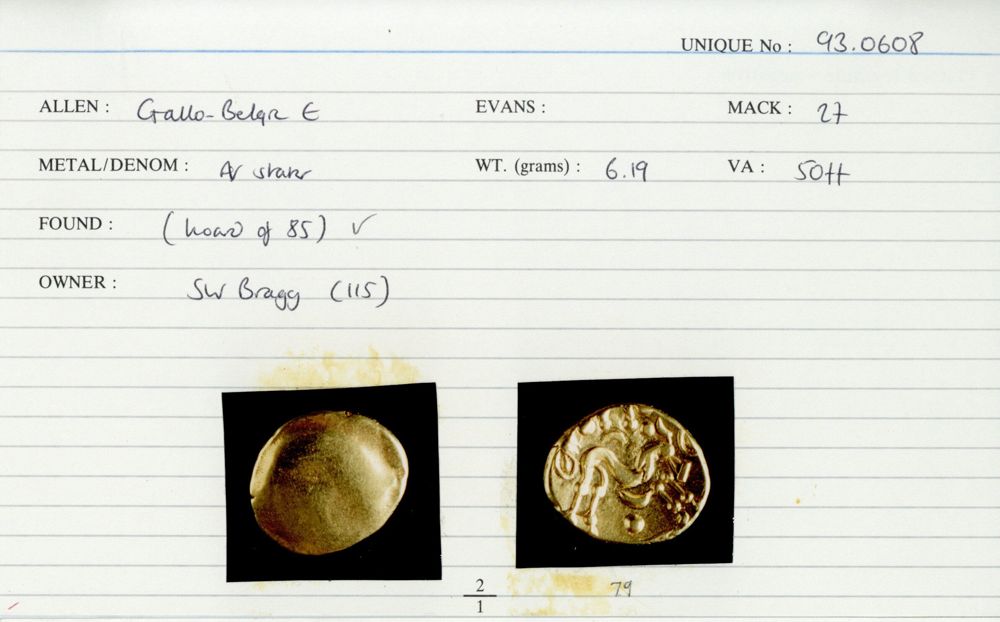 UNIQUE No : 93.0608
ALLEN : Gallo-Belgic E EVANS : MACK : 27
METAL/DENOM : AV stater WT. (grams) : 6.19 VA :
FOUND : (hoard of 85) ✓
OWNER : SW Bragg (115)
2
1
79